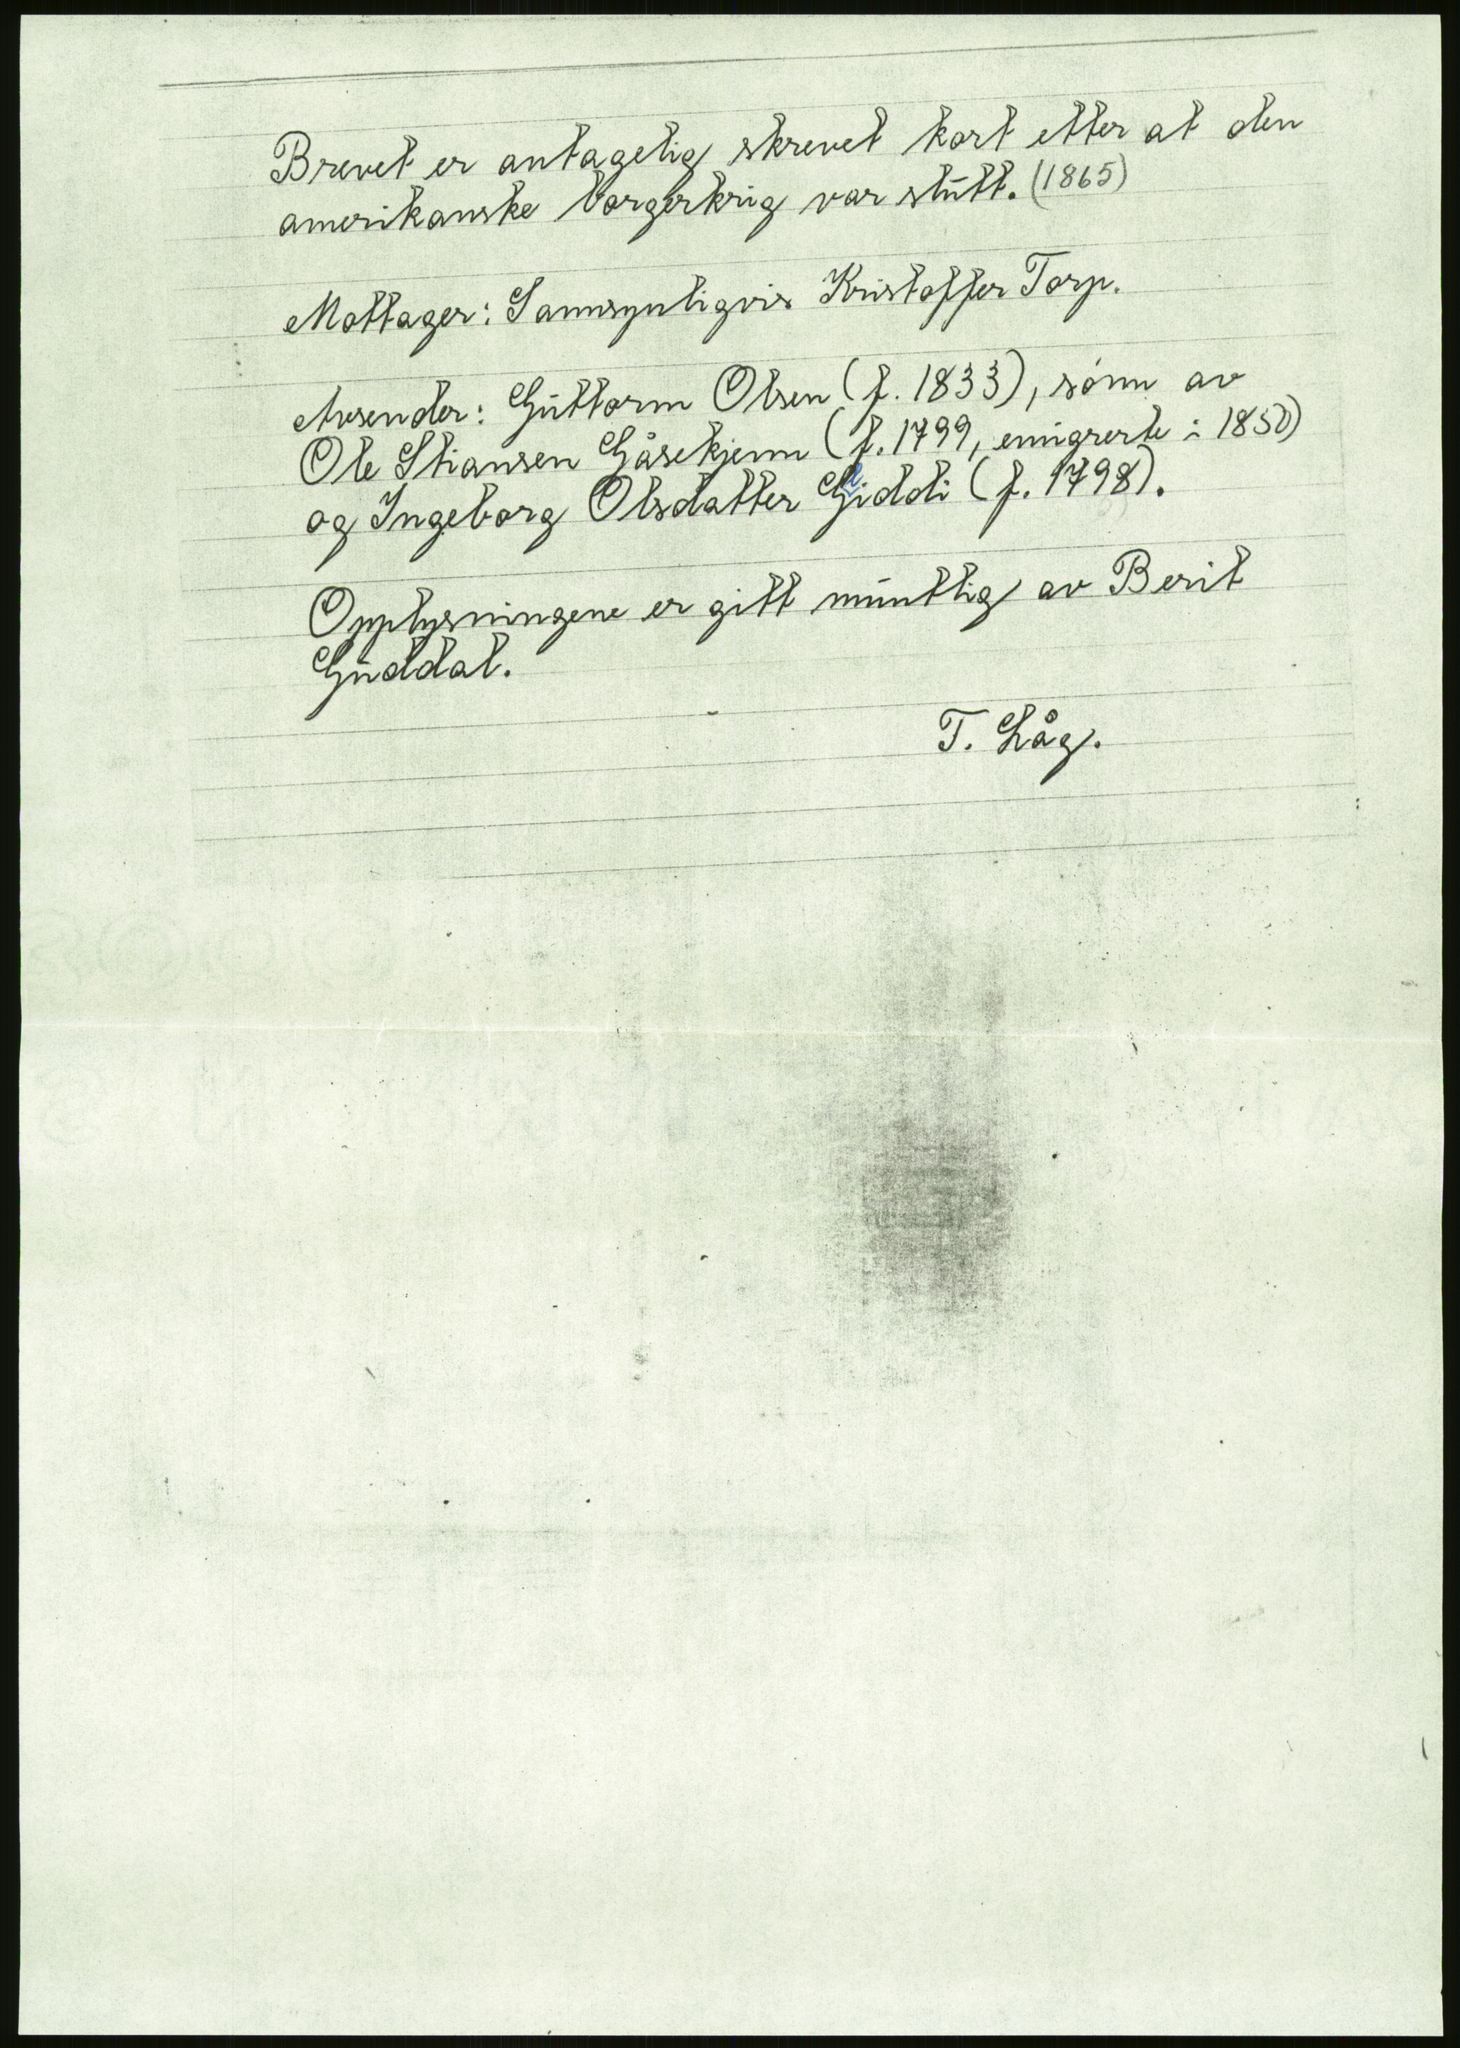 Brevet er antagelig skrevet kort etter at den
amerikanske borgerkrig var slutt. (1865)
Mottager: Sannsynligvis Kristoffer Torp.
Avsender: Guttorm Olsen (f. 1833), sønn av
Ole Stiansen Gåsekjenn (f. 1799, emigrerte i 1850)
og Ingeborg Olsdatter Giddi (f. 1798).
Opplysningene er gitt muntlig av Berit
Guddal.
T. Låg.